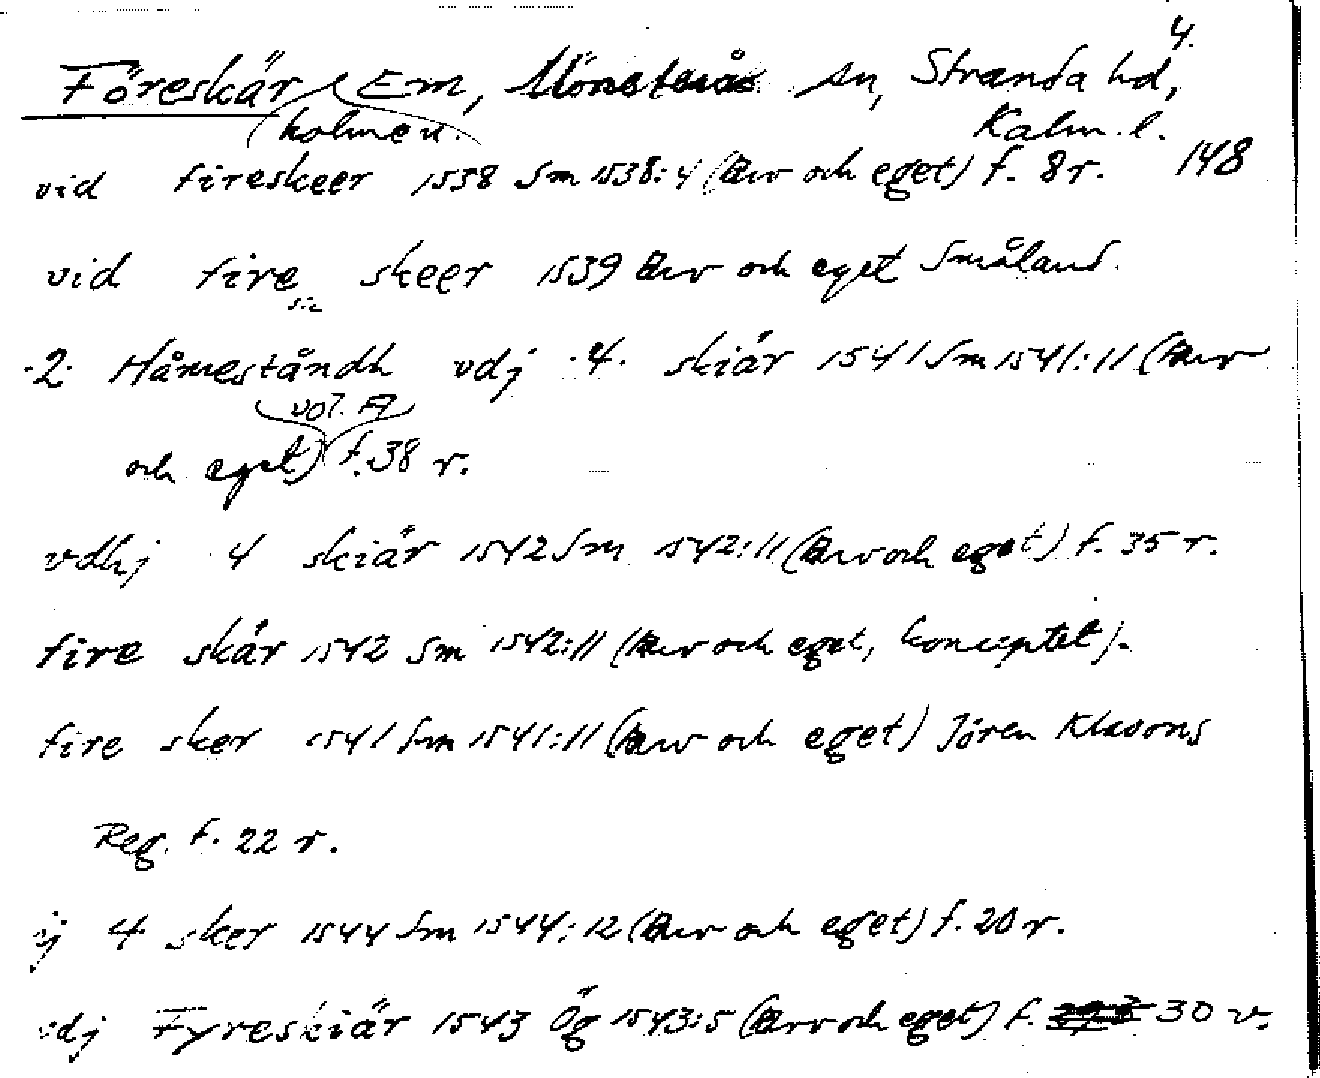 4.
Föreskär Em, Mönsterås sn, Stranda hd,
(holmen. Kalm. l.
vid fireskeer 1538 Sm 1538:4 (Arv och eget) f. 8 r. 148
vid fire skeer 1539 Arv och eget Småland.
sic
.2. Håmeståndh vdj .4. skiär 1541 Sm 1541:11 (Arv
vol. A
och eget) f. 38 r.
vdhj 4 skiär 1542 Sm 1542:11 (Arv och eget) f. 35 r.
fire skär 1542 Sm 1542:11 (Arv och eget, konceptet).
fire sker 1541 Sm 1541:11 (Arv och eget) Jören Klasons
Reg. f. 22 r.
ij 4 sker 1544 Sm 1544:12 (Arv och eget) f. 20 r.
vdj Fyreskiär 1543 Ög 1543:5 (Arv och eget) f. 30 v.